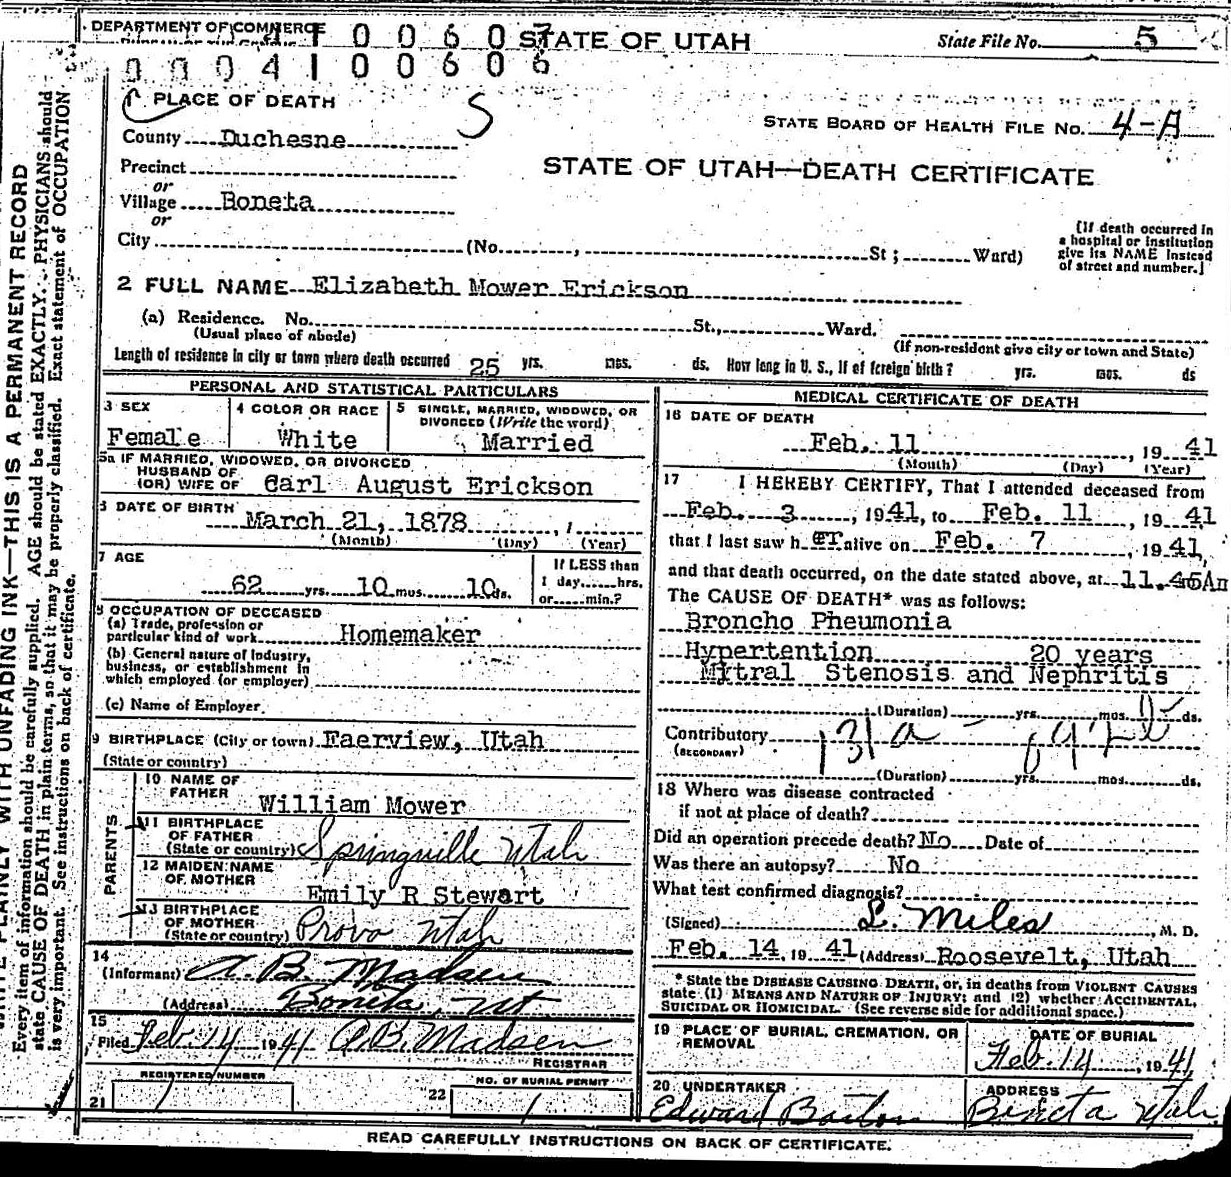 DEPARTMENT OF COMMERCE
STATE OF UTAH
State File No. 5
0 0 0 4 1 0 0 6 0 6
1 PLACE OF DEATH S
STATE BOARD OF HEALTH FILE NO. 4-A
County Duchesne
STATE OF UTAH—DEATH CERTIFICATE
Precinct
or
Village Boneta
or
City (No. , St ; Ward)
[If death occurred in
a hospital or institution
give its NAME instead
of street and number.]
2 FULL NAME Elizabeth Mower Erickson
(a) Residence. No. St., Ward.
(Usual place of abode)
(If non-resident give city or town and State)
Length of residence in city or town where death occurred 25 yrs. mos. ds. How long in U. S., if of foreign birth? yrs. mos. ds
PERSONAL AND STATISTICAL PARTICULARS
3 SEX
Female
4 COLOR OR RACE
White
5 SINGLE, MARRIED, WIDOWED, OR
DIVORCED (Write the word)
Married
5a IF MARRIED, WIDOWED, OR DIVORCED
HUSBAND OF
(OR) WIFE OF Carl August Erickson
6 DATE OF BIRTH March 21, 1878
(Month) (Day) (Year)
7 AGE
62 yrs. 10 mos. 10 ds.
If LESS than
1 day......hrs.
or......min.?
8 OCCUPATION OF DECEASED
(a) Trade, profession or
particular kind of work Homemaker
(b) General nature of industry,
business, or establishment in
which employed (or employer)
(c) Name of Employer
9 BIRTHPLACE (City or town) Faerview, Utah
(State or country)
PARENTS
10 NAME OF
FATHER
William Mower
11 BIRTHPLACE
OF FATHER
(State or country) Springville Utah
12 MAIDEN NAME
OF MOTHER
Emily R Stewart
13 BIRTHPLACE
OF MOTHER
(State or country) Provo Utah
14
(Informant) A. B. Madsen
(Address) Boneta, Ut
15
Filed Feb. 14 19 41 A.B. Madsen
REGISTRAR
REGISTERED NUMBER
21 1
NO. OF BURIAL PERMIT
22 1
MEDICAL CERTIFICATE OF DEATH
16 DATE OF DEATH
Feb. 11 , 19 41
(Month) (Day) (Year)
17 I HEREBY CERTIFY, That I attended deceased from
Feb. 3 , 1941, to Feb. 11 , 19 41
that I last saw h er alive on Feb. 7 , 19 41,
and that death occurred, on the date stated above, at 11.45Am
The CAUSE OF DEATH* was as follows:
Broncho Pheumonia
Hypertention 20 years
Mitral Stenosis and Nephritis
(Duration) yrs. mos. ds.
Contributory 131a
(SECONDARY)
(Duration) yrs. mos. ds.
18 Where was disease contracted
if not at place of death?
Did an operation precede death? No Date of
Was there an autopsy? No
What test confirmed diagnosis?
(Signed) L. Miles , M. D.
Feb. 14, 19 41 (Address) Roosevelt, Utah
* State the DISEASE CAUSING DEATH, or, in deaths from VIOLENT CAUSES
state (1) MEANS AND NATURE OF INJURY; and (2) whether ACCIDENTAL,
SUICIDAL OR HOMICIDAL. (See reverse side for additional space.)
19 PLACE OF BURIAL, CREMATION, OR
REMOVAL
DATE OF BURIAL
Feb. 14 , 19 41
20 UNDERTAKER
Edward Barton
ADDRESS
Boneta Utah
READ CAREFULLY INSTRUCTIONS ON BACK OF CERTIFICATE.
WRITE PLAINLY WITH UNFADING INK—THIS IS A PERMANENT RECORD
Every item of information should be carefully supplied. AGE should be stated EXACTLY. PHYSICIANS should
state CAUSE OF DEATH in plain terms, so that it may be properly classified. Exact statement of OCCUPATION
is very important. See instructions on back of certificate.